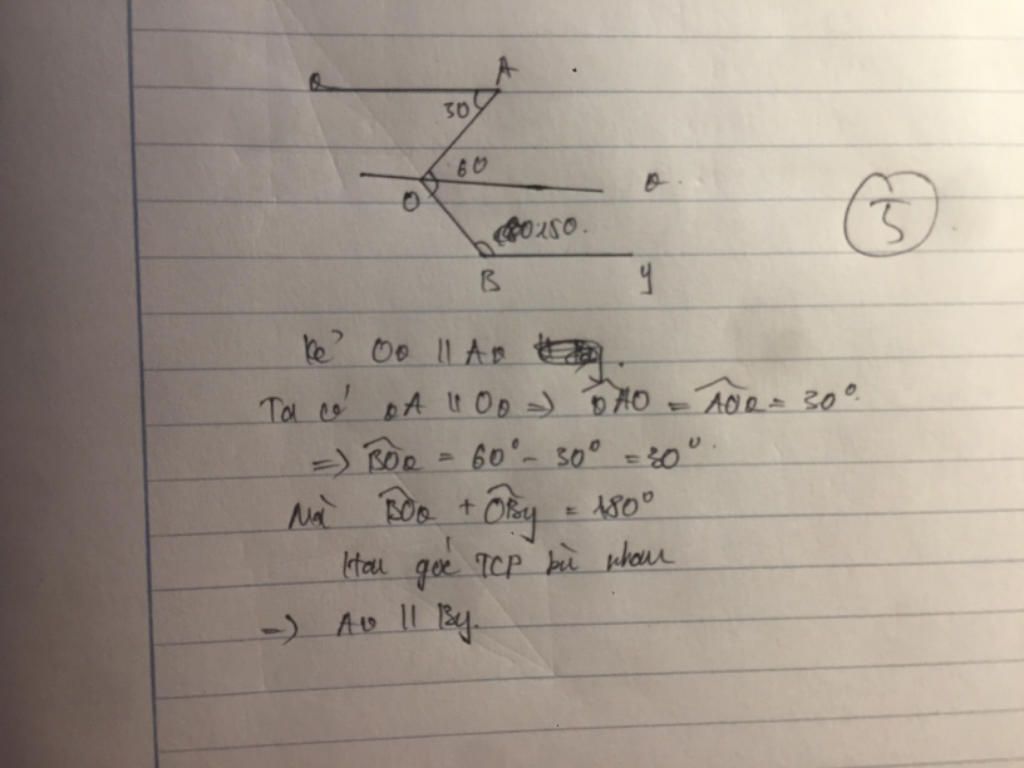 A
a
30
60
O
a
150
B
y
5
Kẻ Oa // Aa
Ta có aA // Oa => aAO = AOa = 30°
=> BOa = 60° - 30° = 30°
Mà BOa + OBy = 180°
Hai góc TCP bù nhau
-> Aa // By.